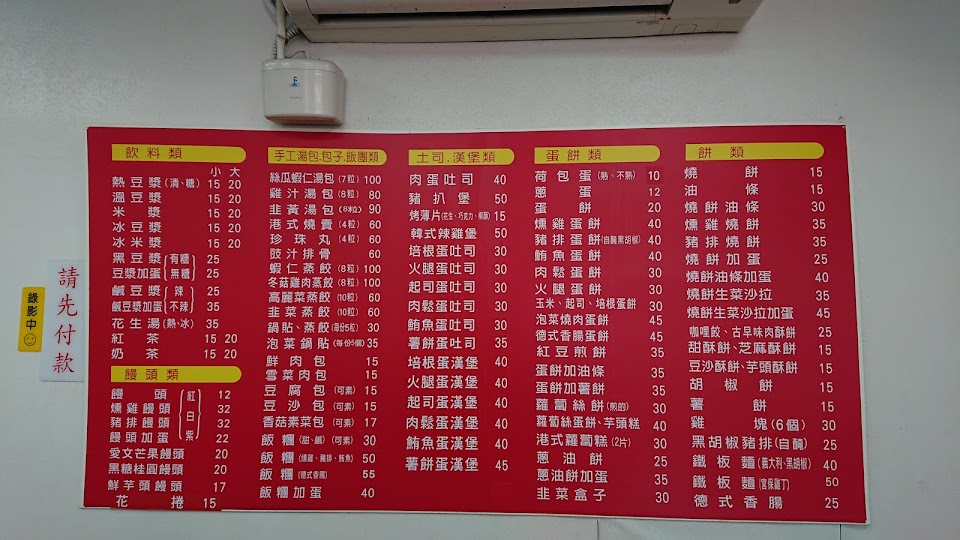 飲料類
小 大
熱豆漿(清、糖) 15 20
溫豆漿 15 20
米漿 15 20
冰豆漿 15 20
冰米漿 15 20
黑豆漿(有糖 25
豆漿加蛋 無糖) 25
鹹豆漿(辣 25
鹹豆漿加蛋 不辣) 35
花生湯(熱、冰) 35
紅茶 15 20
奶茶 15 20
饅頭類
饅頭 12
燻雞饅頭 32
豬排饅頭 32
饅頭加蛋 22
紅白紫
愛文芒果饅頭 20
黑糖桂圓饅頭 20
鮮芋頭饅頭 17
花捲 15
手工湯包.包子.飯團類
絲瓜蝦仁湯包(7粒) 100
雞汁湯包(8粒) 80
韭黃湯包(8粒) 90
港式燒賣(4粒) 60
珍珠丸(4粒) 60
豉汁排骨 60
蝦仁蒸餃(8粒) 100
冬菇雞肉蒸餃(8粒) 100
高麗菜蒸餃(10粒) 60
韭菜蒸餃(10粒) 60
鍋貼、蒸餃(每份5粒) 30
泡菜鍋貼(每份5個) 35
鮮肉包 15
雪菜肉包 15
豆腐包(可素) 15
豆沙包(可素) 15
香菇素菜包(可素) 17
飯糰(甜、鹹)(可素) 30
飯糰(燻雞、豬排、鮪魚) 50
飯糰(德式香腸) 55
飯糰加蛋 40
土司.漢堡類
肉蛋吐司 40
豬扒堡 50
烤薄片(花生、巧克力、椰酥) 15
韓式辣雞堡 50
培根蛋吐司 30
火腿蛋吐司 30
起司蛋吐司 30
肉鬆蛋吐司 30
鮪魚蛋吐司 30
薯餅蛋吐司 35
培根蛋漢堡 40
火腿蛋漢堡 40
起司蛋漢堡 40
肉鬆蛋漢堡 40
鮪魚蛋漢堡 40
薯餅蛋漢堡 45
蛋餅類
荷包蛋(熟、不熟) 10
蔥蛋 12
蛋餅 20
燻雞蛋餅 40
豬排蛋餅(自醃黑胡椒) 40
鮪魚蛋餅 40
肉鬆蛋餅 30
火腿蛋餅 30
玉米、起司、培根蛋餅 30
泡菜燒肉蛋餅 45
德式香腸蛋餅 45
紅豆煎餅 35
蛋餅加油條 35
蛋餅加薯餅 35
蘿蔔絲餅(煎的) 30
蘿蔔絲蛋餅、芋頭糕 40
港式蘿蔔糕(2片) 30
蔥油餅 25
蔥油餅加蛋 35
韭菜盒子 30
餅類
燒餅 15
油條 15
燒餅油條 30
燻雞燒餅 35
豬排燒餅 35
燒餅加蛋 25
燒餅油條加蛋 40
燒餅生菜沙拉 35
燒餅生菜沙拉加蛋 45
咖哩餃、古早味肉酥餅 25
甜酥餅、芝麻酥餅 15
豆沙酥餅、芋頭酥餅 15
胡椒餅 15
薯餅 15
雞塊(6個) 30
黑胡椒豬排(自醃) 25
鐵板麵(義大利、黑胡椒) 40
鐵板麵(宮保雞丁) 50
德式香腸 25
錄影中
請先付款